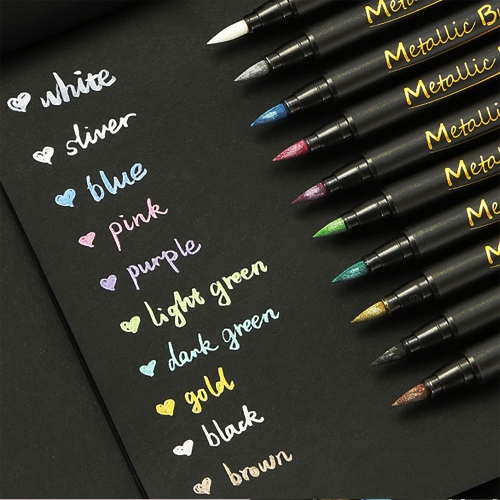 white
sliver
blue
pink
purple
light green
dark green
gold
black
brown
Metallic Br
Metallic
Metallic
Metallic
Metalli
Me
Me